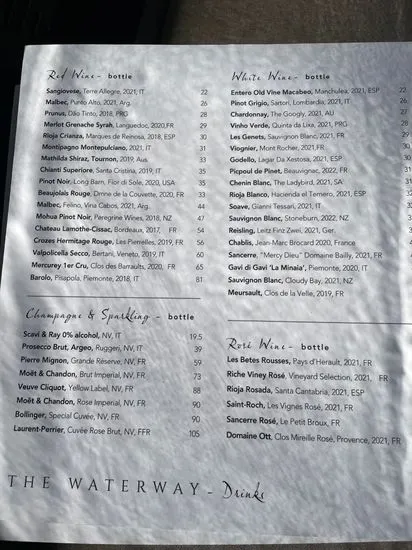 Red Wine - bottle
Sangiovese, Terre Allegre, 2021, IT 22
Malbec, Punto Alto, 2021, Arg. 26
Prunus, Dão Tinto, 2018, PRG 28
Merlot Grenache Syrah, Languedoc, 2020,FR 29
Rioja Crianza, Marques de Reinosa, 2018, ESP 30
Montipagno Montepulciano, 2021, IT 31
Mathilda Shiraz, Tournon, 2019, Aus. 33
Chianti Superiore, Santa Cristina, 2019, IT 35
Pinot Noir, Long Barn, Fior di Sole, 2020, USA 35
Beaujolais Rouge, Dmne de la Couvette, 2020, FR 33
Malbec, Felino, Vina Cabos, 2021, Arg. 44
Mohua Pinot Noir, Peregrine Wines, 2018, NZ 47
Chateau Lamothe-Cissac, Bordeaux, 2017, FR 54
Crozes Hermitage Rouge, Les Pierrelles, 2019, FR 56
Valpolicella Secco, Bertani, Veneto, 2019, IT 60
Mercurey 1er Cru, Clos des Barraults, 2020, FR 65
Barolo, Pisapola, Piemonte, 2018, IT 81
Champagne & Sparkling - bottle
Scavi & Ray 0% alcohol, NV, IT 19.5
Prosecco Brut, Argeo, Ruggeri, NV, IT 39
Pierre Mignon, Grande Réserve, NV, FR 59
Moët & Chandon, Brut Imperial, NV, FR 73
Veuve Cliquot, Yellow Label, NV, FR 88
Moët & Chandon, Rose Imperial, NV, FR 90
Bollinger, Special Cuvée, NV, FR 90
Laurent-Perrier, Cuvée Rose Brut, NV, FFR 105
White Wine - bottle
Entero Old Vine Macabeo, Manchulea, 2021, ESP 22
Pinot Grigio, Sartori, Lombardia, 2021, IT 26
Chardonnay, The Googly, 2021, AU 27
Vinho Verde, Quinta da Lixa, 2021, PRG 28
Les Genets, Sauvignon Blanc, 2021, FR
Viognier, Mont Rocher, 2021,FR
Godello, Lagar Da Xestosa, 2021, ESP
Picpoul de Pinet, Beauvignac, 2022, FR
Chenin Blanc, The Ladybird, 2021, SA
Rioja Blanco, Hacienda el Ternero, 2021, ESP
Soave, Gianni Tessari, 2021, IT
Sauvignon Blanc, Stoneburn, 2022, NZ
Reisling, Leitz Finz Zwei, 2021, Ger.
Chablis, Jean-Marc Brocard 2020, France
Sancerre, "Mercy Dieu" Domaine Bailly, 2021, FR
Gavi di Gavi 'La Minaia', Piemonte, 2020, IT
Sauvignon Blanc, Cloudy Bay, 2021, NZ
Meursault, Clos de la Velle, 2019, FR
Rosé Wine - bottle
Les Betes Rousses, Pays d'Herault, 2021, FR
Riche Viney Rosé, Vineyard Selection, 2021, FR
Rioja Rosada, Santa Cantabria, 2021, ESP
Saint-Roch, Les Vignes Rosé, 2021, FR
Sancerre Rosé, Le Petit Broux, FR
Domaine Ott, Clos Mireille Rosé, Provence, 2021, FR
THE WATERWAY - Drinks